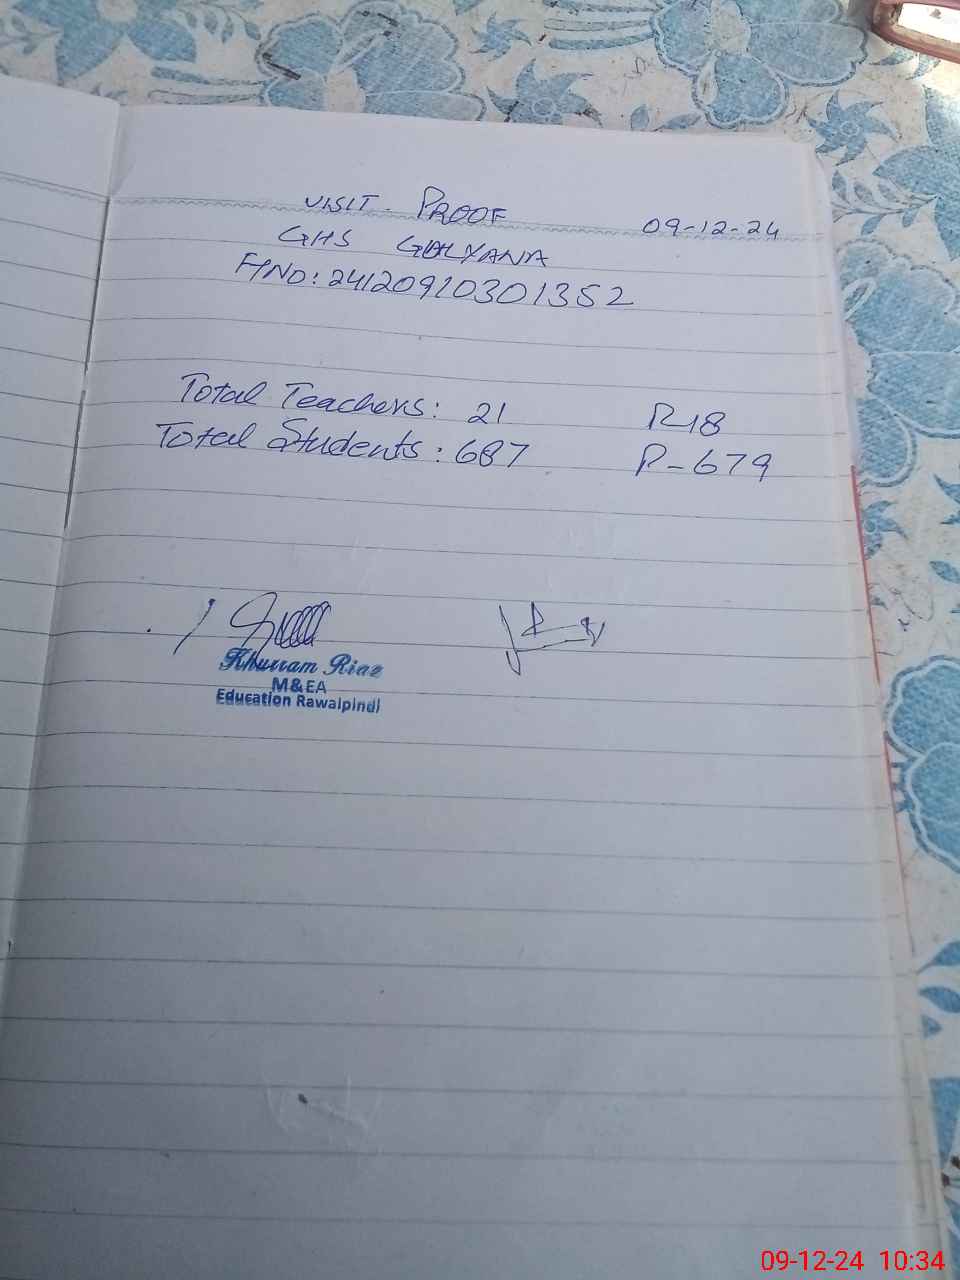 VISIT - PROOF 09-12-24
GHS GULYANA
F/NO: 2412091030 1352
Total Teachers: 21 P-18
Total Students: 687 P-679
Khurram Riaz
M&EA
Education Rawalpindi
09-12-24 10:34